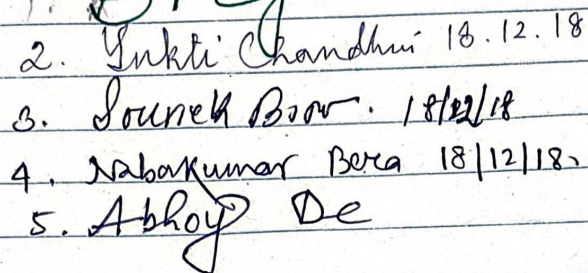 2. Yukti Chandhui 18.12.18
3. Sounek 18/12/18
4. Nabakumar Bera 18/12/18
5. Abhoy De